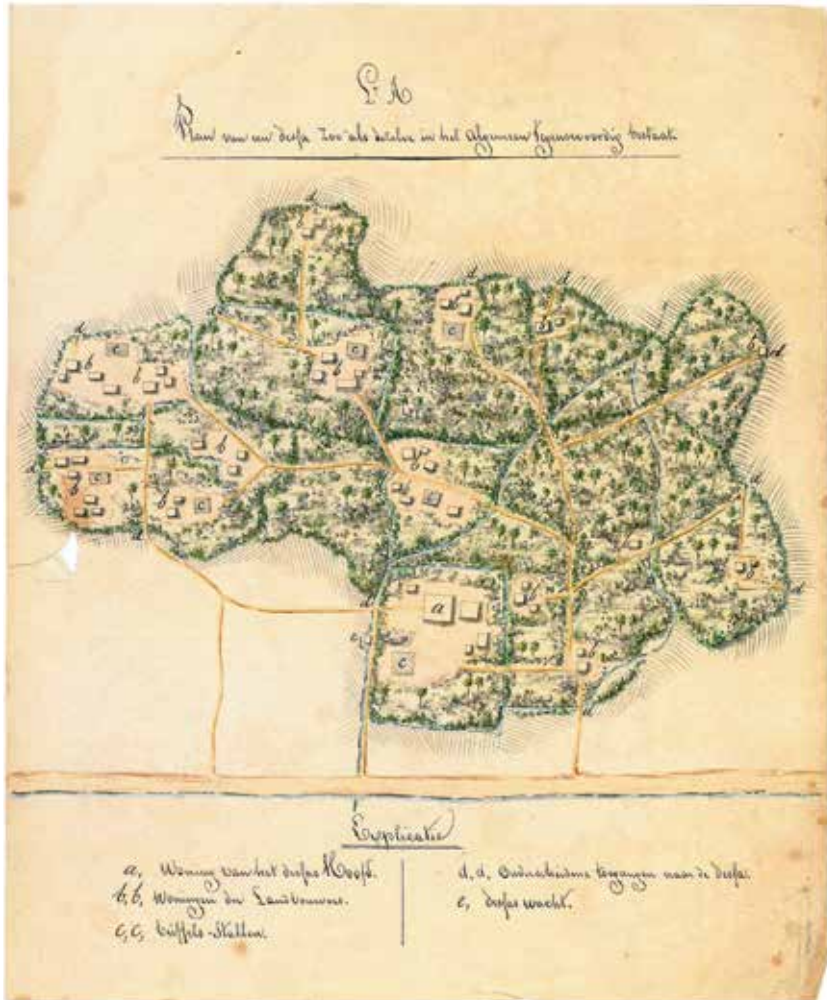 Lr A
Plan van een dessa Zoo als dezelve in het Algemeen Tegenwoordig bestaat
d
b
d
d
d
c
b
b
d
d
c
b
c
b
b
d
b
d
b
c
b
b
c
b
c
d
b
d
d
b
a
b
d
e
c
b
d
Explicatie
a, Woning van het dessas Hoofd.
b, b, Woningen der Landbouwers.
c, c, buffels-Stallen.
d, d, Onderscheidene toegangen naar de dessa.
e, dessas wacht.